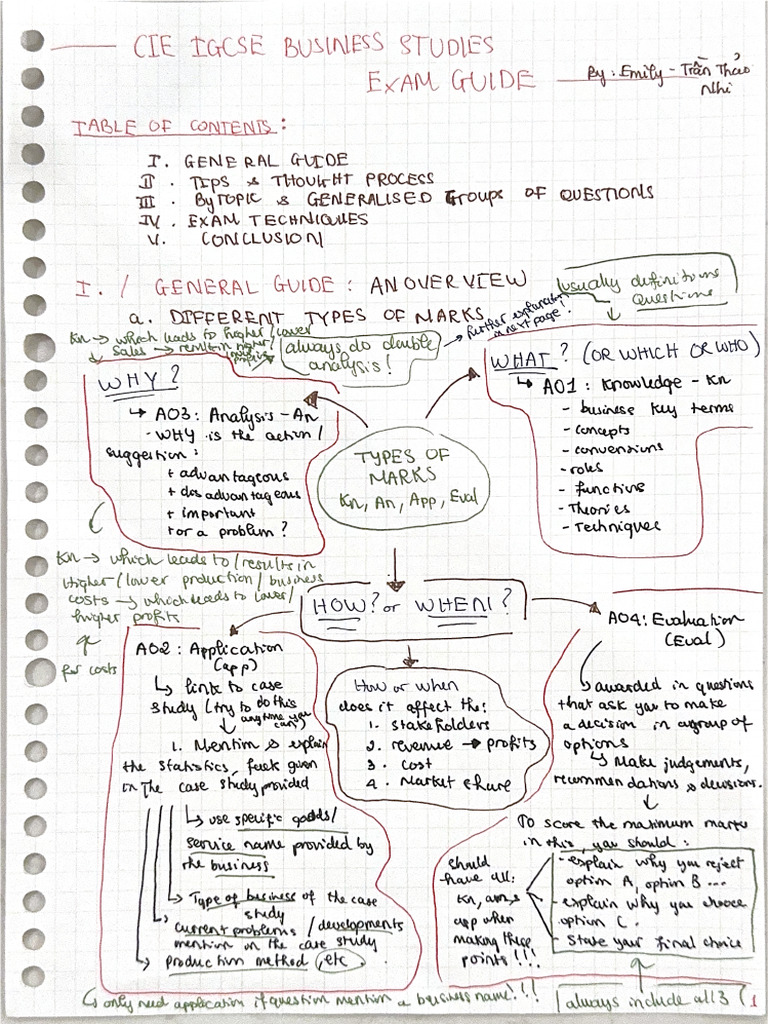 CIE IGCSE BUSINESS STUDIES
EXAM GUIDE
By: Emily - Trần Thảo
Nhi
TABLE OF CONTENTS:
I. GENERAL GUIDE
II. TIPS & THOUGHT PROCESS
III. By TOPIC & GENERALISED Groups OF QUESTIONS
IV. EXAM TECHNIQUES
V. CONCLUSION
I. / GENERAL GUIDE: AN OVERVIEW
usually definitions
questions
a. DIFFERENT TYPES OF MARKS
further explanation
in next page!
Kn → which leads to higher/lower
sales → results in higher/
always do double
analysis!
WHY?
↳ AO3: Analysis - An
- WHY is the action/
suggestion:
+ advantageous
+ disadvantageous
+ important
+ or a problem?
WHAT? (OR WHICH OR WHO)
↳ AO1: Knowledge - Kn
- business key terms
- concepts
- conventions
- roles
- functions
- Theories
- Techniques
TYPES OF
MARKS
Kn, An, App, Eval
Kn → which leads to/results in
Higher/lower production/business
costs → which leads to lower/
higher profits
for costs
HOW? or WHEN?
AO2: Application
(app)
↳ link to case
study (try to do this
anytime you
can)
1. Mention & explain
the statistics, fact given
in the case study provided
↳ use specific goods/
service name provided by
the business
Type of business of the case
study
current problems / developments
mention in the case study
production method, etc.
How or when
does it affect the:
1. stakeholders
2. revenue → profits
3. cost
4. Market share
AO4: Evaluation
(Eval)
awarded in questions
that ask you to make
a decision in a group of
options
↳ Make judgements,
recommendations & decisions.
To score the maximum marks
in this, you should:
- explain why you reject
option A, option B ...
- explain why you choose
option C.
- State your final choice
should
have all:
Kn, an &
app when
making these
points!!!
↳ only need application if question mention a business name!!!
always include all 3
1